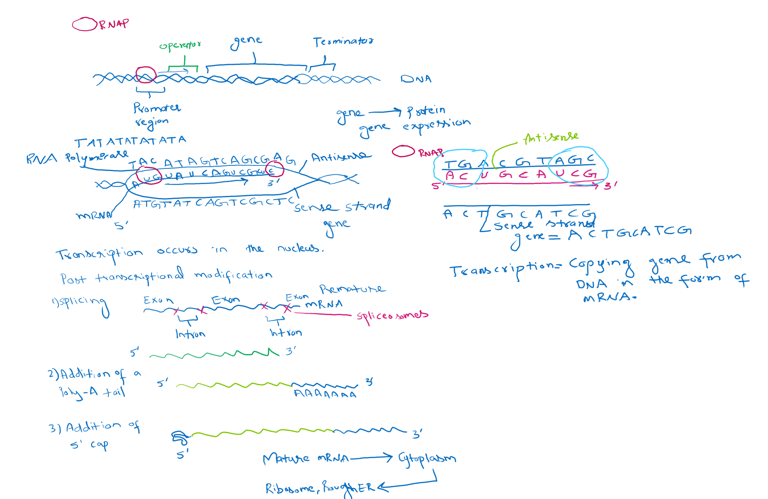 RNAP
operator gene Terminator
DNA
Promoter
region
gene → Protein
gene expression
TATATATATATA
RNA Polymerase
TAC ATAGTCAGCGAG
Antisense
AUGUAUCAGUCGCUC 3'
mRNA
5'
ATGTATCAGTCGCTC
sense strand
gene
Antisense
RNAP
TGACGTAGC
ACUGCAUCG
5' 3'
ACTGCATCG
sense strand
gene = ACTGCATCG
Transcription = Copying gene from
DNA in the form of
mRNA.
Transcription occurs in the nucleus.
Post transcriptional modification
1) splicing
Exon Exon Exon Premature
mRNA
spliceosomes
Intron Intron
5' 3'
2) Addition of a
Poly-A tail
5' 3'
AAAAAAA
3) Addition of
5' cap
5' 3'
Mature mRNA → Cytoplasm
Ribosome, RoughER